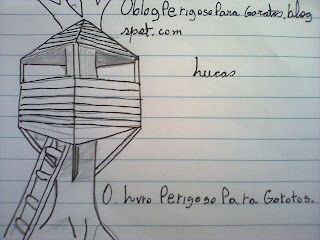 O blog Perigoso Para Garotos.blog
spot.com
Lucas
O Livro Perigoso Para Garotos.